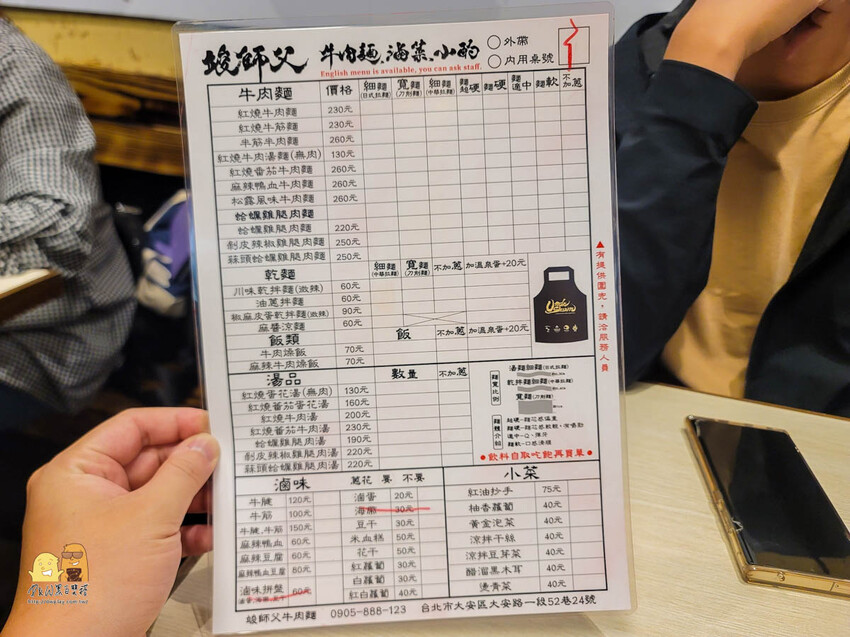 竣師父 牛肉麵、滷菜、小酌
English menu is available, you can ask staff.
外帶
內用桌號
牛肉麵 價格 細麵(日式拉麵) 寬麵(刀削麵) 細麵(中華拉麵) 麵超硬 麵硬 麵適中 麵軟 不加蔥
紅燒牛肉麵 230元
紅燒牛筋麵 230元
半筋半肉麵 260元
紅燒牛肉湯麵(無肉) 130元
紅燒番茄牛肉麵 260元
麻辣鴨血牛肉麵 260元
松露風味牛肉麵 260元
蛤蠣雞腿肉麵
蛤蠣雞腿肉麵 220元
剝皮辣椒雞腿肉麵 250元
蒜頭蛤蠣雞腿肉麵 250元
乾麵 細麵(中華拉麵) 寬麵(刀削麵) 不加蔥 加溫泉蛋+20元
川味乾拌麵(微辣) 60元
油蔥拌麵 60元
椒麻皮蛋乾拌麵(微辣) 90元
麻醬涼麵 60元
飯類 飯 不加蔥 加溫泉蛋+20元
牛肉燥飯 70元
麻辣牛肉燥飯 70元
▲有提供圍兜，請洽服務人員
湯品 數量 不加蔥
紅燒蛋花湯(無肉) 130元
紅燒番茄蛋花湯 160元
紅燒牛肉湯 200元
紅燒番茄牛肉湯 230元
蛤蠣雞腿肉湯 190元
剝皮辣椒雞腿肉湯 220元
蒜頭蛤蠣雞腿肉湯 220元
麵寬比例
湯麵細麵(日式拉麵)
乾拌麵細麵(中華拉麵)
寬麵(刀削麵)
麵體介紹
●飲料自取吃飽再買單●
滷味 蔥花 要 不要
牛腱 120元
牛筋 100元
牛腱.牛筋 150元
麻辣鴨血 60元
麻辣豆腐 60元
麻辣鴨血豆腐 80元
滷味拼盤 60元
滷蛋 20元
海帶 30元
豆干 30元
米血糕 50元
花干 50元
紅蘿蔔 30元
白蘿蔔 30元
紅白蘿蔔 40元
小菜
紅油抄手 75元
柚香蘿蔔 40元
黃金泡菜 40元
涼拌干絲 40元
涼拌豆芽菜 40元
醋溜黑木耳 40元
燙青菜 40元
竣師父牛肉麵 0905-888-123 台北市大安區大安路一段52巷24號